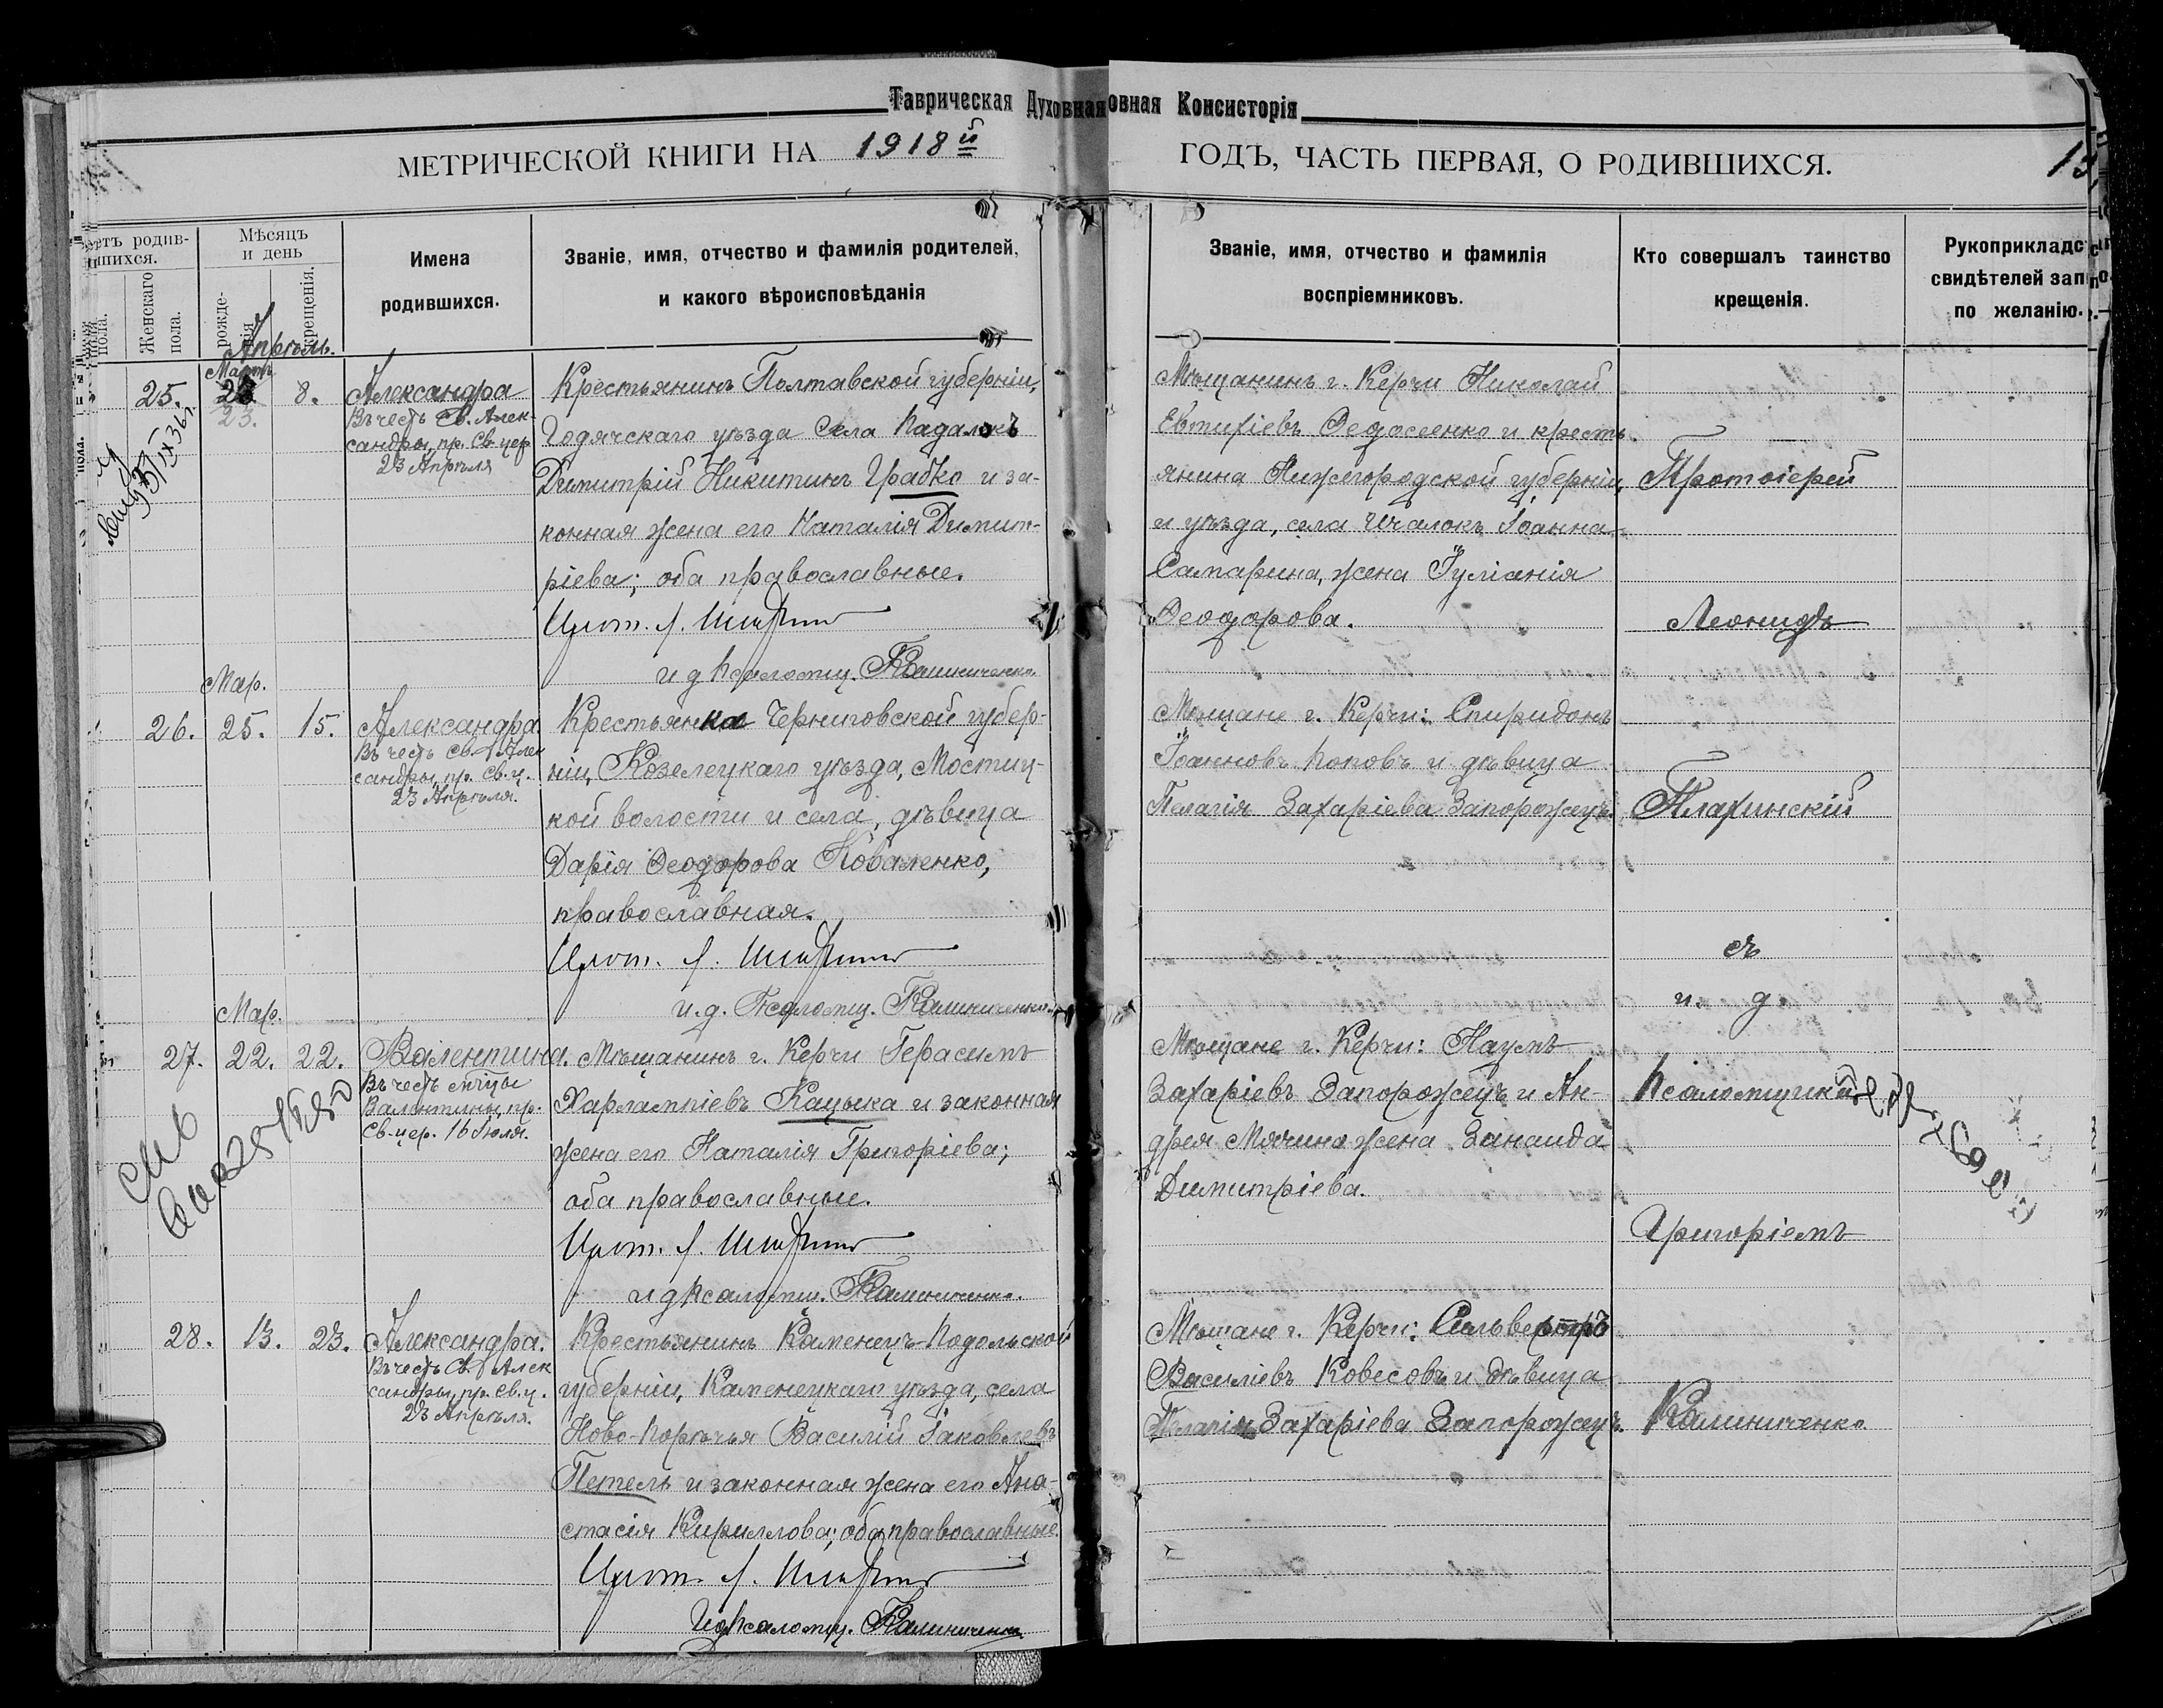 Таврическая Духовная
овная Консисторія
МЕТРИЧЕСКОЙ КНИГИ НА 1918й
ГОДЪ, ЧАСТЬ ПЕРВАЯ, О РОДИВШИХСЯ.
13
етъ родив-
шихся.
пола.
Женскаго
пола.
Мѣсяцъ
и день
рожде-
нія
крещенія.
Имена
родившихся.
Званіе, имя, отчество и фамилія родителей,
и какого вѣроисповѣданія
Званіе, имя, отчество и фамилія
воспріемниковъ.
Кто совершалъ таинство
крещенія.
Рукоприкладс
свидѣтелей зап
по желанію.
Апрѣль.
Мартъ
25.
23.
8.
Александра
Въ честь св. Алек-
сандры, пр. св. цер.
23 Апрѣля
Крестьянинъ Полтавской губерніи,
Годячскаго уѣзда села Кадалокъ
Димитрій Никитинъ Грабко и за-
конная жена его Наталія Димит-
ріева; оба православные.
Прот. Л.
и д псаломщ. Калиниченко.
Мѣщанинъ г. Керчи Николай
Евтихіевъ Федосеенко и кресть-
янина Нижегородской губерніи,
и уѣзда, села Ичалокъ Іоанна
Самарина, жена Іуліанія
Феодорова.
Протоіерей
Леонидъ
Мар.
26.
25.
15.
Александра.
Въ честь св. Алек
сандры, пр. св. ц.
23 Апрѣля.
Крестьянка Черниговской губер-
ніи, Козелецкаго уѣзда, Мостищ-
кой волости и села, дѣвица
Дарія Феодорова Коваленко,
православная.
Прот. Л.
и. д. Псаломщ. Калиниченко.
Мѣщане г. Керчи: Спиридонъ
Іоанновъ Поповъ и дѣвица
Пелагія Захаріева Запорожецъ.
Плахинскій
съ
и. д.
Мар.
27.
22.
22.
Валентина.
Въ честь мчцы
Валентины, пр.
св. цер. 16 Іюля.
Мѣщанинъ г. Керчи Герасимъ
Харлампіевъ Кацыка и законная
жена его Наталія Григоріева;
оба православные.
Прот. Л.
и д псаломщ. Калиниченко.
Мѣщане г. Керчи: Наумъ
Захаріевъ Запорожецъ и Ан-
дрея Мячина жена Зинаида
Димитріева.
Псаломщикомъ
Григоріемъ
28.
13.
23.
Александра.
Въ честь св. Алек
сандры, пр. св. ц.
23 Апрѣля.
Крестьянинъ Каменецъ-Подольской
губерніи, Каменецкаго уѣзда, села
Ново-Порѣчья Василій Іаковлевъ
Петель и законная жена его Ана-
стасія Кириллова; оба православные
Прот. Л.
и д псаломщ. Калиниченко.
Мѣщане г. Керчи: Сильвестръ
Василіевъ Ковесовъ и дѣвица
Пелагія Захаріева Запорожецъ.
Калиниченко